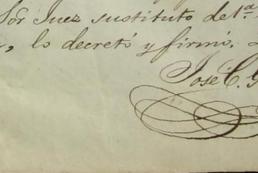 Sor Juez sustituto de 1.ª
, lo decretó y firmó.
José C. G